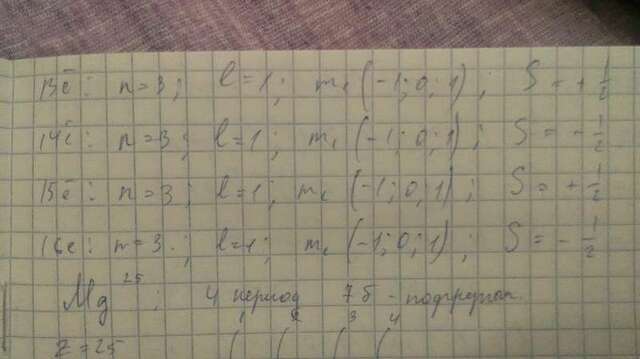 13ē: n=3; l=1; mₗ (-1; 0; 1); S=+1/2
14ē: n=3; l=1; mₗ (-1; 0; 1); S=-1/2
15ē: n=3; l=1; mₗ (-1; 0; 1); S=+1/2
16e: n=3; l=1; mₗ (-1; 0; 1); S=-1/2
Mg²⁵; 4 период 7 б-подгруппа.
1 2 3 4
Z=25 ( ( ( (